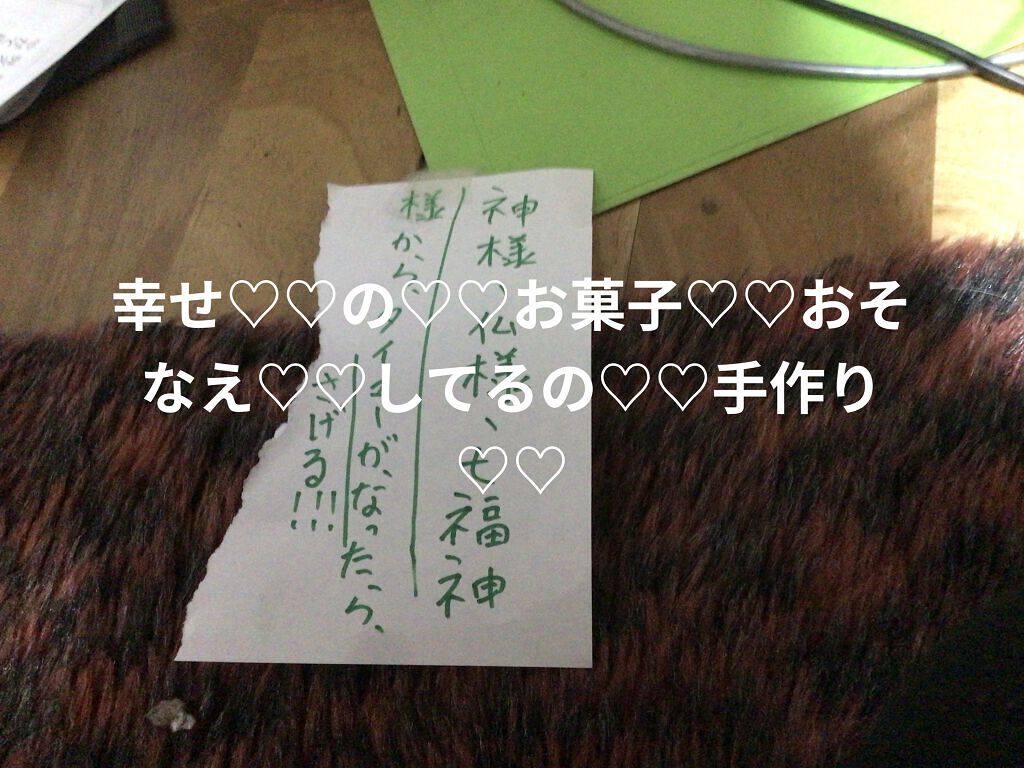 幸せ♡♡の♡♡お菓子♡♡おそ
なえ♡♡してるの♡♡手作り
♡♡
神様、仏様、七福神
様から、タイマーが、なったら、
さげる!!!